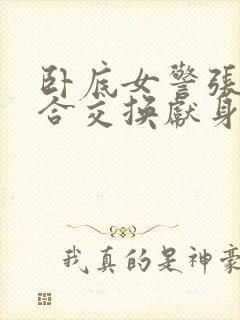 卧底女警张
合交换献身
我真的是神豪